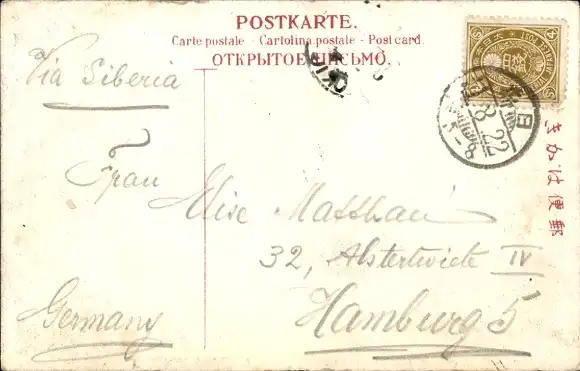 POSTKARTE.
Carte postale - Cartolina postale - Postcard.
ОТКРЫТОЕ ПИСЬМО.
Via Siberia
Frau
Elise Matthaei
32, Alstertwiete IV
Hamburg 5
Germany
きかは便郵
8 22